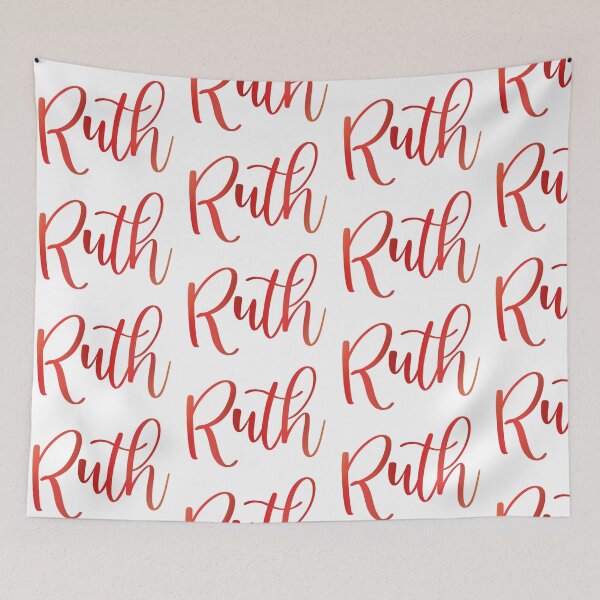 Ruth Ru
Ruth Ruth
Ruth Ru
Ruth Ruth
Ruth Ru
Ruth Ruth
Ruth Ru
Ruth Ruth
Ruth